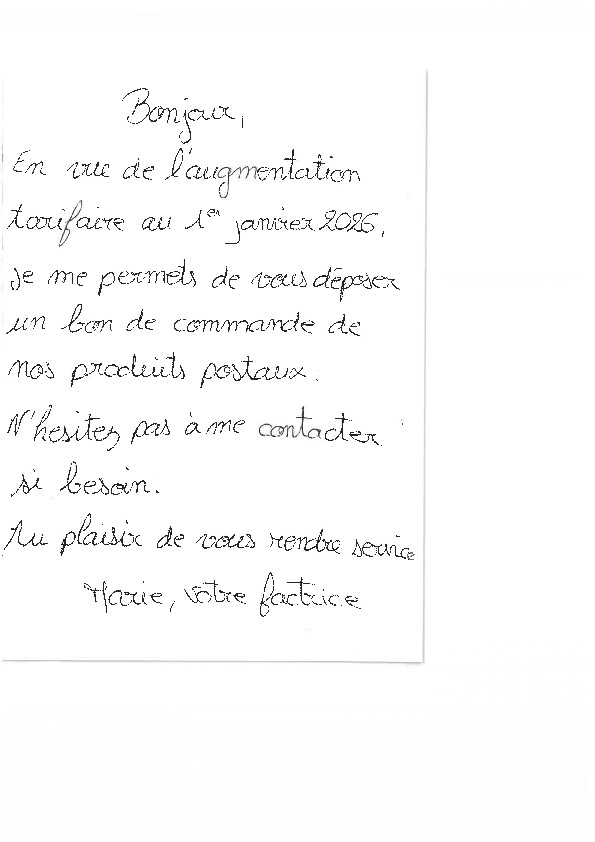 Bonjour,
En vue de l'augmentation
tarifaire au 1er janvier 2026,
je me permets de vous déposer
un bon de commande de
nos produits postaux.
N'hesitez pas à me contacter
si besoin.
Au plaisir de vous rendre service
Marie, votre factrice